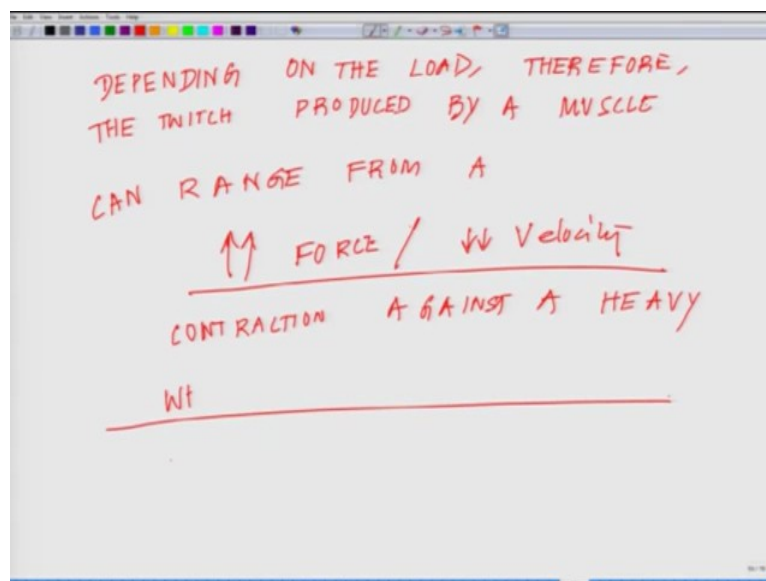 DEPENDING ON THE LOAD, THEREFORE,
THE TWITCH PRODUCED BY A MUSCLE
CAN RANGE FROM A
↑↑ FORCE / ↓↓ Velocity
CONTRACTION AGAINST A HEAVY
Wt